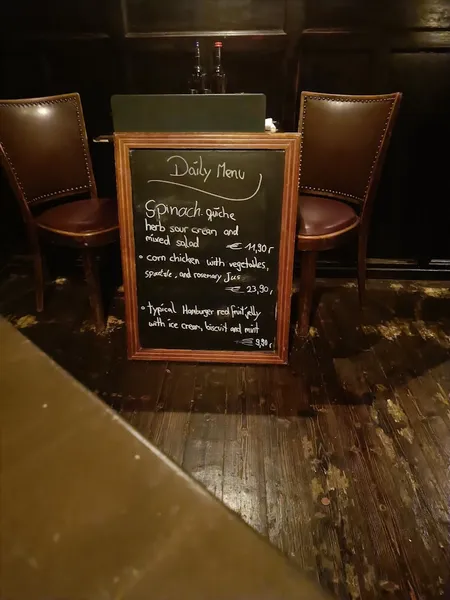 Daily Menu
Spinach quiche
herb sour cream and
mixed salad € 11,90
• corn chicken with vegetables,
spaetzle, and rosemary Jus
€ 23,90
• typical Hamburger red fruit jelly
with ice cream, biscuit and mint
€ 9,90